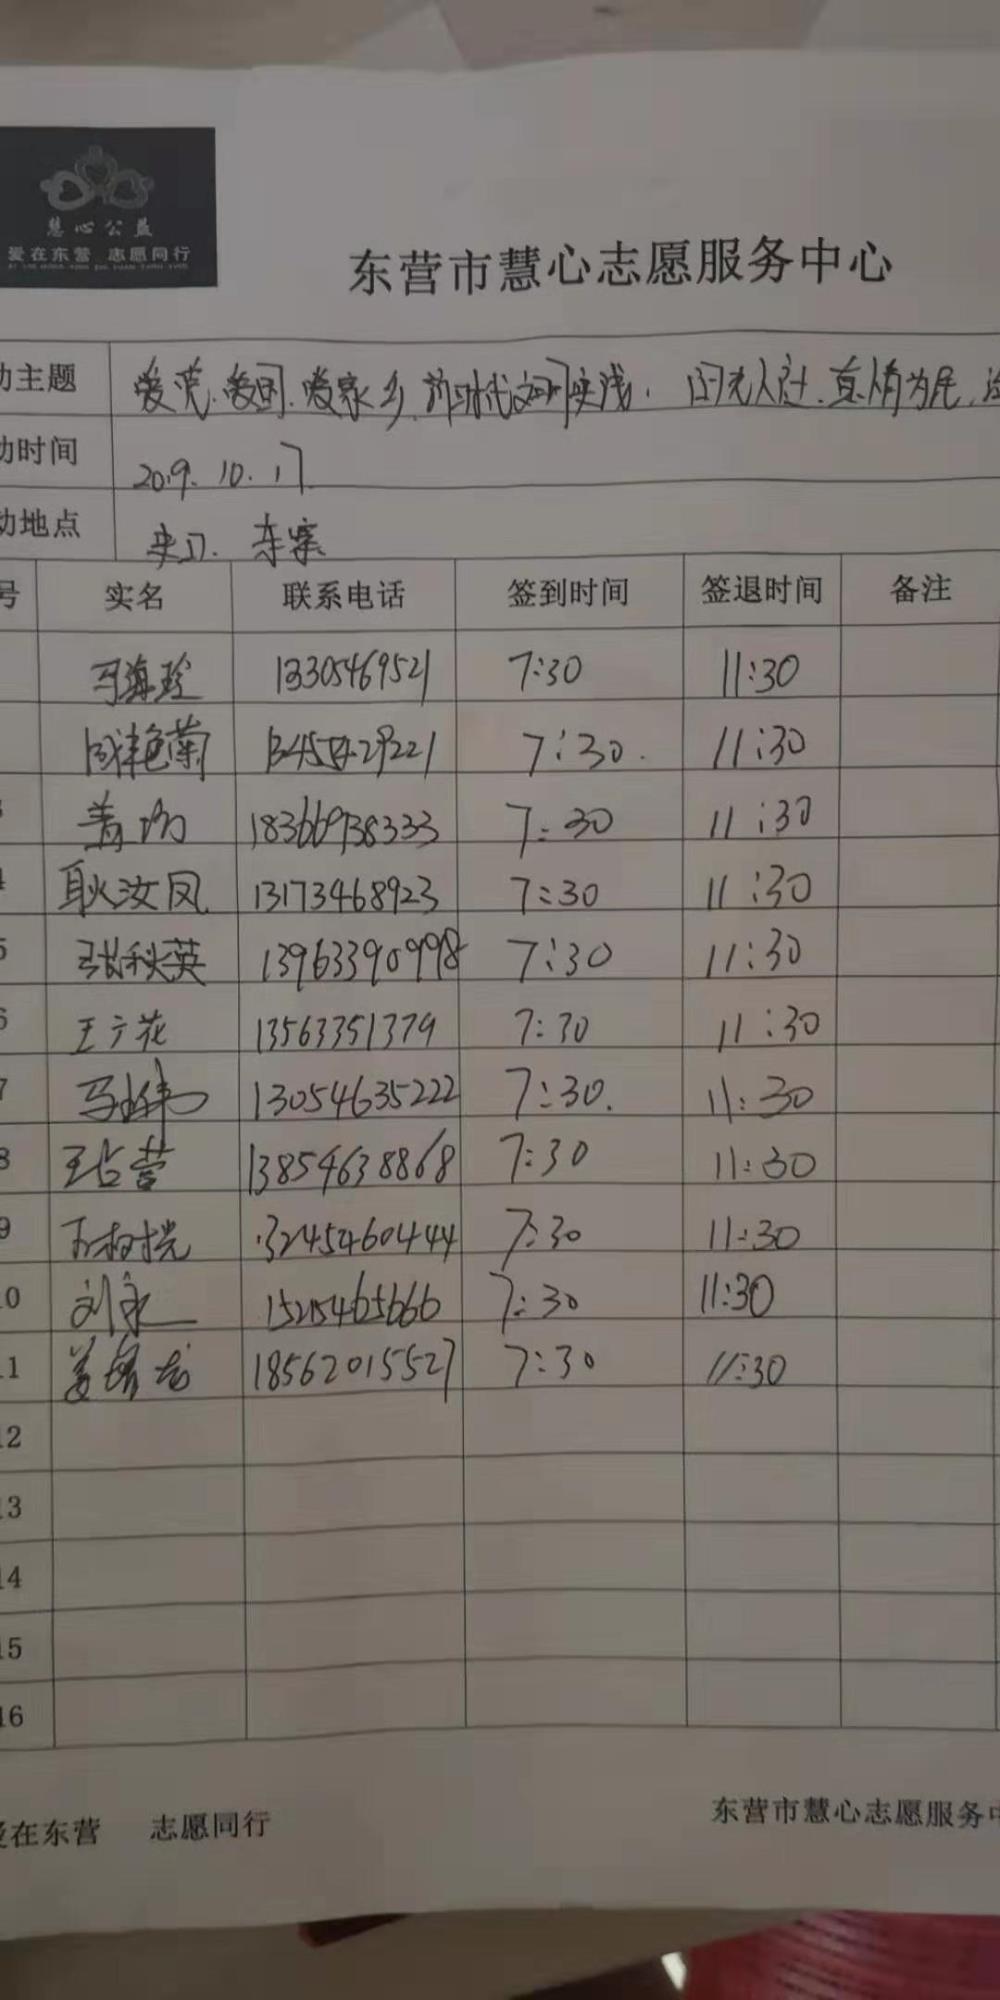 慧心公益
爱在东营 志愿同行
东营市慧心志愿服务中心
动主题 爱党.爱国.爱家乡.新时代文明实践.
动时间 2019.10.17
动地点
号 实名 联系电话 签到时间 签退时间 备注
马海玲 13305469521 7:30 11:30
成艳菊 7:30. 11:30
18366938333 7:30 11:30
4 耿汝凤 13173468923 7:30 11:30
5 张秋英 13963390998 7:30 11:30
6 王广花 13563351379 7:30 11:30
7 13054635222 7:30. 11:30
8 王占营 13854638868 7:30 11:30
9 7:30 11:30
10 刘永 7:30 11:30
11 18562015527 7:30 11:30
12
13
14
15
16
爱在东营 志愿同行 东营市慧心志愿服务中